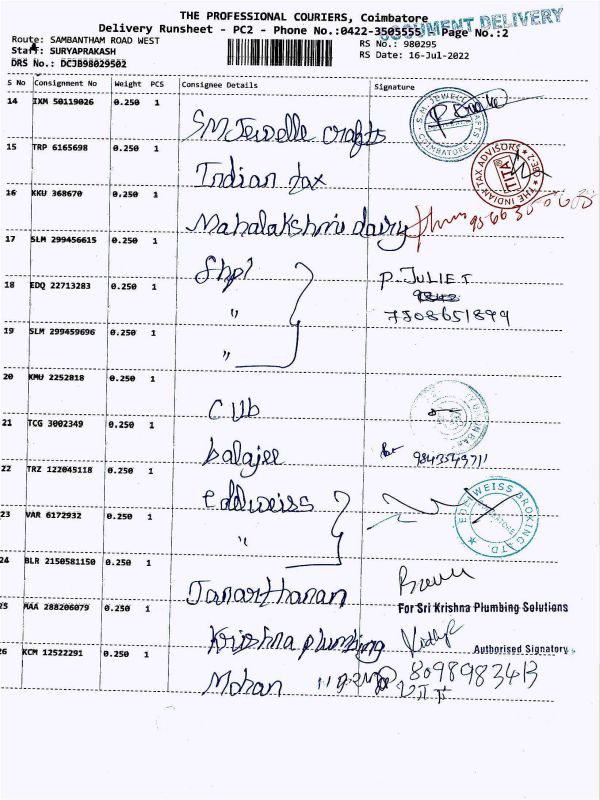 THE PROFESSIONAL COURIERS, Coimbatore
DOCUMENT DELIVERY
Delivery Runsheet - PC2 - Phone No.:0422-3505555 Page No.:2
Route: SAMBANTHAM ROAD WEST
RS No.: 980295
Staff: SURYAPRAKASH
RS Date: 16-Jul-2022
DRS No.: DCJB98029502
S No Consignment No Weight PCS Consignee Details Signature
14 IXM 50119026 0.250 1 SM Jewelle crafts
15 TRP 6165698 0.250 1 Indian tax
THE INDIAN TAX ADVISORS
TITA
16 KKU 368670 0.250 1 Mahalakshmi dairy
17 SLM 299456615 0.250 1 Shpl P. JULIET
18 EDQ 22713283 0.250 1 " 7508651899
19 SLM 299459696 0.250 1 "
20 KMU 2252818 0.250 1 CUb
21 TCG 3002349 0.250 1 balajee 9843549711
22 TRZ 122045118 0.250 1 eddlweiss
EDELWEISS BROKING LTD.
23 VAR 6172932 0.250 1 "
24 BLR 2150581150 0.250 1 Janarthanan
For Sri Krishna Plumbing Solutions
25 MAA 288206079 0.250 1 Krishna plumbing
Authorised Signatory
26 KCM 12522291 0.250 1 Mohan 8098983413